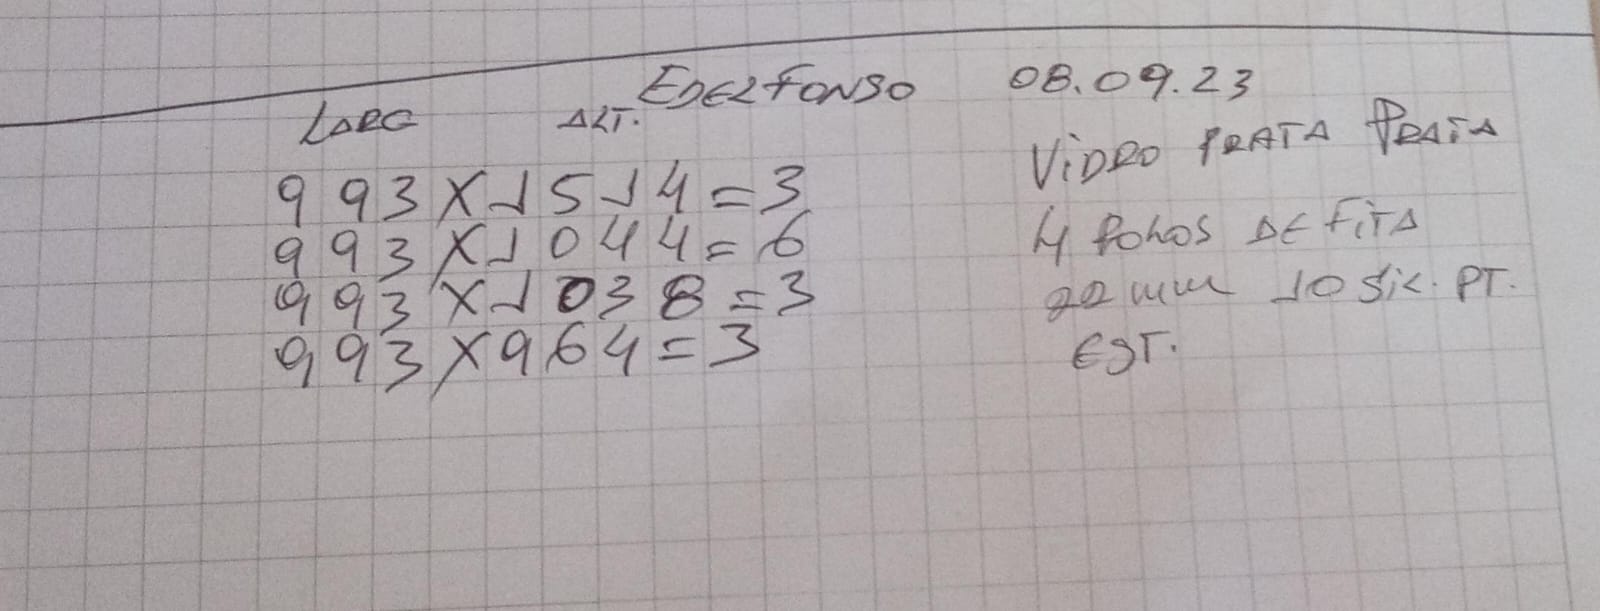 EDELFONSO 08.09.23
LARG ALT.
993X1514=3
993X1044=6
993X1038=3
993X964=3
VIDRO PRATA PRATA
4 ROLOS DE FITA
22 mm 10 SIL. PT.
EST.